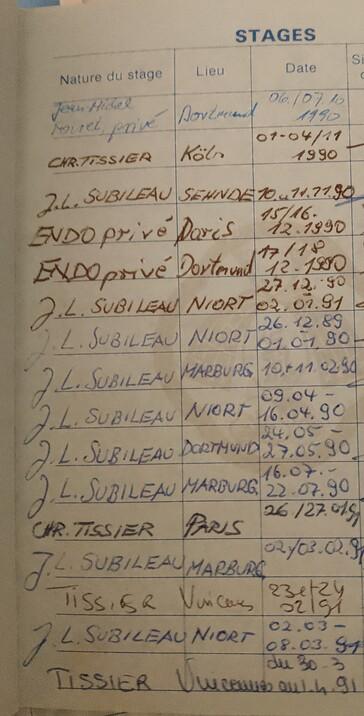 STAGES
Nature du stage Lieu Date
Jean-Michel Dortmund 06./07.10
privé 1990
01-04/11
CHR.TISSIER Köln 1990
J.L. SUBILEAU SEHNDE 10.u.11.11.90
15/16.
ENDO privé Paris 12.1990
17/18
ENDO privé Dortmund 12.1990
27.12.90
J.L. SUBILEAU NIORT 02.01.91
26.12.89
J.L. SUBILEAU NIORT 01.01.90
J.L. SUBILEAU MARBURG 10.+11.02.90
09.04 -
J.L. SUBILEAU NIORT 16.04.90
24.05 -
J.L. SUBILEAU DORTMUND 27.05.90
16.07. -
J.L. SUBILEAU MARBURG 22.07.90
CHR. TISSIER PARIS 26/27.01.91
J.L. SUBILEAU MARBURG 02/03.02.91
23 et 24
TISSIER 02/91
02.03 -
J.L. SUBILEAU NIORT 08.03.91
du 30.3
TISSIER Vincennes au 1.4.91